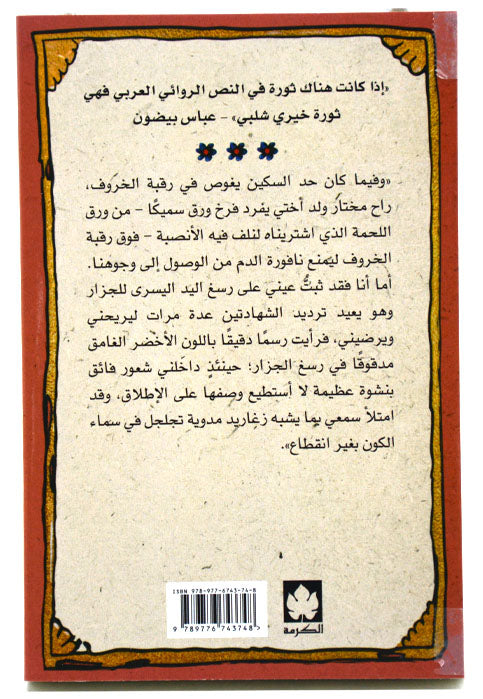 «إذا كانت هناك ثورة في النص الروائي العربي فهي
ثورة خيري شلبي» – عباس بيضون
«وفيما كان حد السكين يغوص في رقبة الخروف،
راح مختار ولد أختي يفرد فرخ ورق سميكًا – من ورق
اللحمة الذي اشتريناه لنلف فيه الأنصبة – فوق رقبة
الخروف ليمنع نافورة الدم من الوصول إلى وجوهنا.
أما أنا فقد ثبتُّ عينيَ على رسغ اليد اليسرى للجزار
وهو يعيد ترديد الشهادتين عدة مرات ليريحني
ويرضيني، فرأيت رسمًا دقيقًا باللون الأخضر الغامق
مدقوقًا في رسغ الجزار؛ حينئذٍ داخلني شعور فائق
بنشوة عظيمة لا أستطيع وصفها على الإطلاق، وقد
امتلأ سمعي بما يشبه زغاريد مدوية تجلجل في سماء
الكون بغير انقطاع».
ISBN 978-977-6743-74-8
9 789776 743748
الكرمة